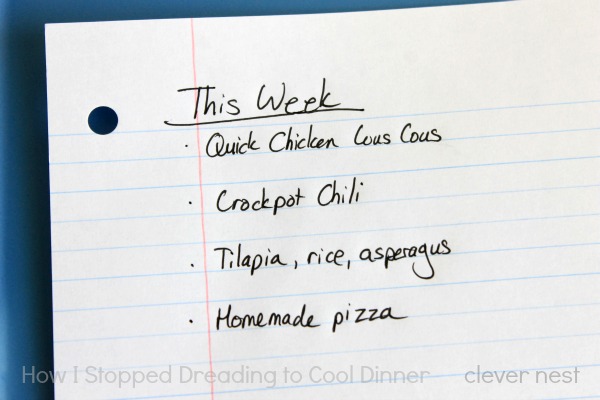 This Week
· Quick Chicken Cous Cous
· Crockpot Chili
· Tilapia, rice, asparagus
· Homemade pizza
How I Stopped Dreading to Cool Dinner clever nest